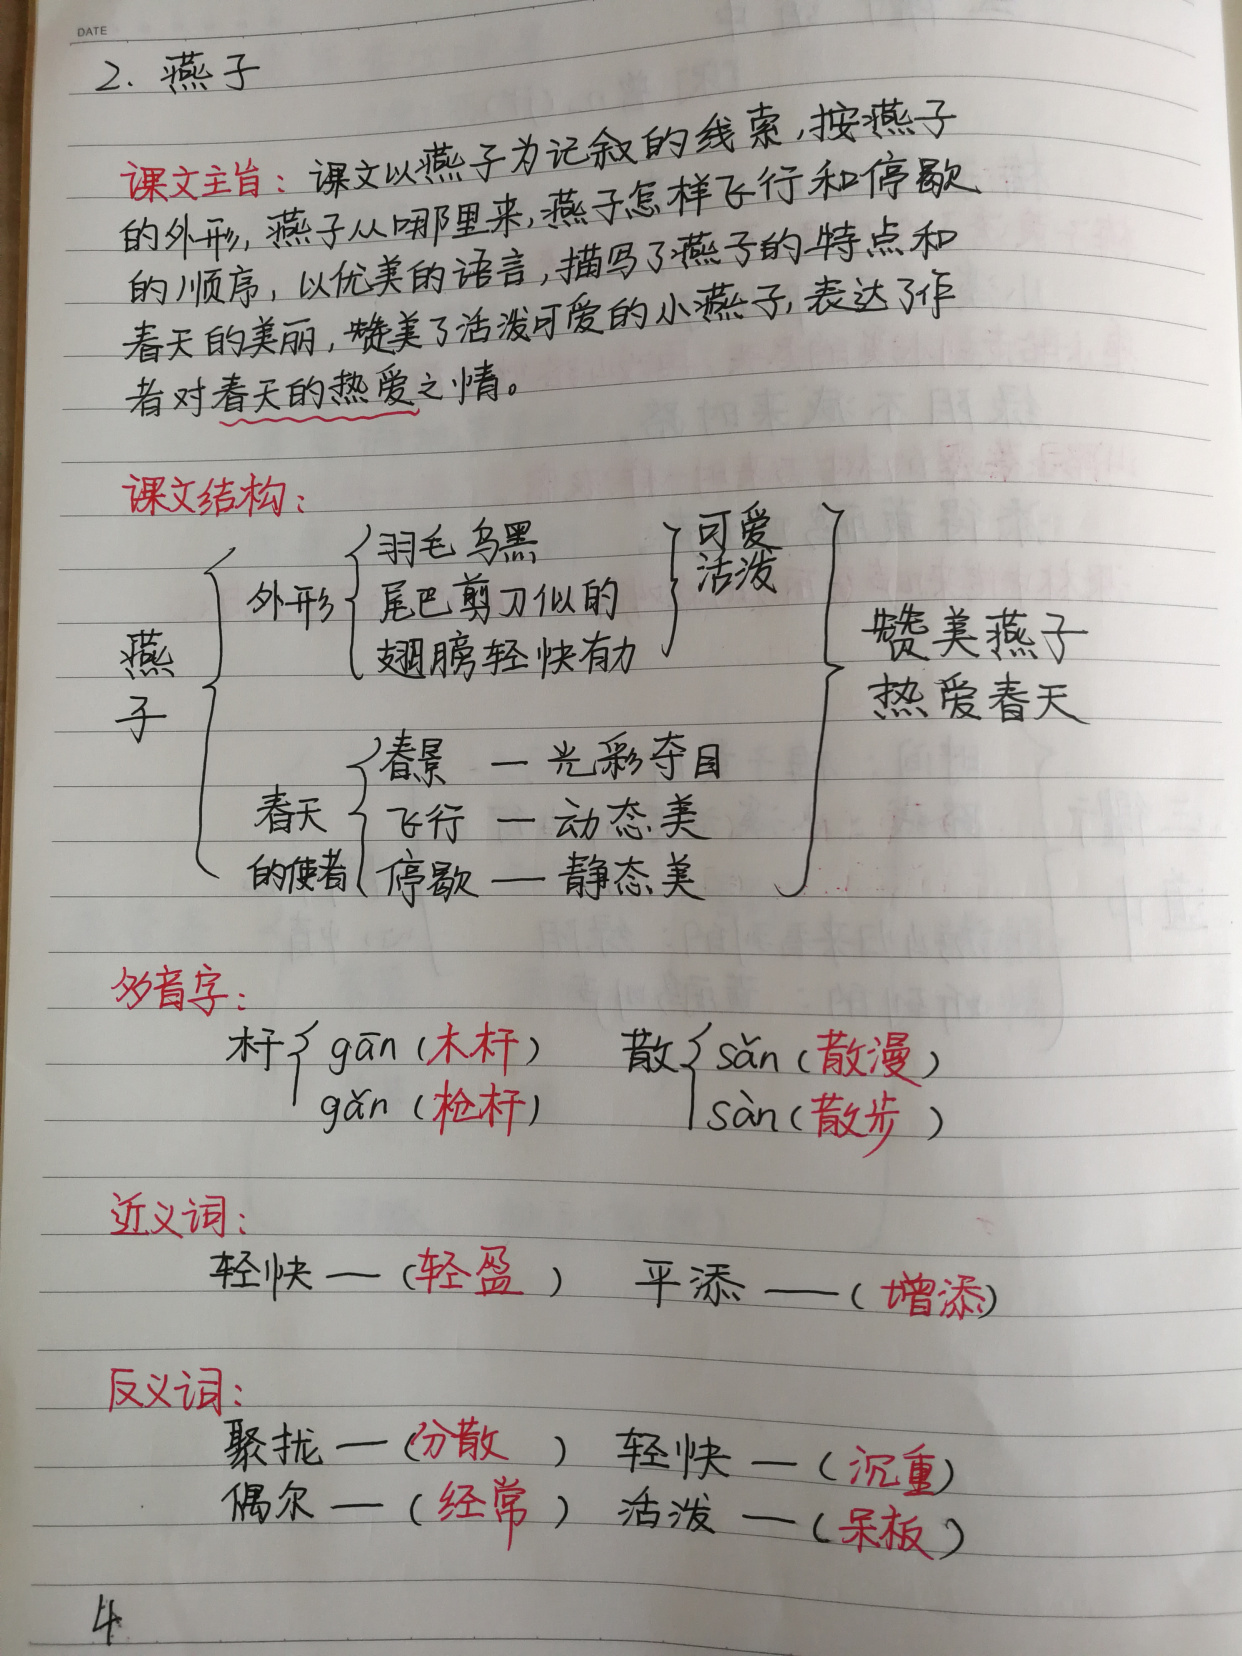 DATE
2. 燕子
课文主旨：课文以燕子为记叙的线索，按燕子
的外形，燕子从哪里来，燕子怎样飞行和停歇
的顺序，以优美的语言，描写了燕子的特点和
春天的美丽，赞美了活泼可爱的小燕子，表达了作
者对春天的热爱之情。
课文结构：
燕子
外形
羽毛乌黑
尾巴剪刀似的
翅膀轻快有力
可爱
活泼
春天
的使者
春景 — 光彩夺目
飞行 — 动态美
停歇 — 静态美
赞美燕子
热爱春天
多音字：
杆 gān（木杆） 散 sǎn（散漫）
gǎn（枪杆） sàn（散步）
近义词：
轻快 —（轻盈） 平添 —（增添）
反义词：
聚拢 —（分散） 轻快 —（沉重）
偶尔 —（经常） 活泼 —（呆板）
4